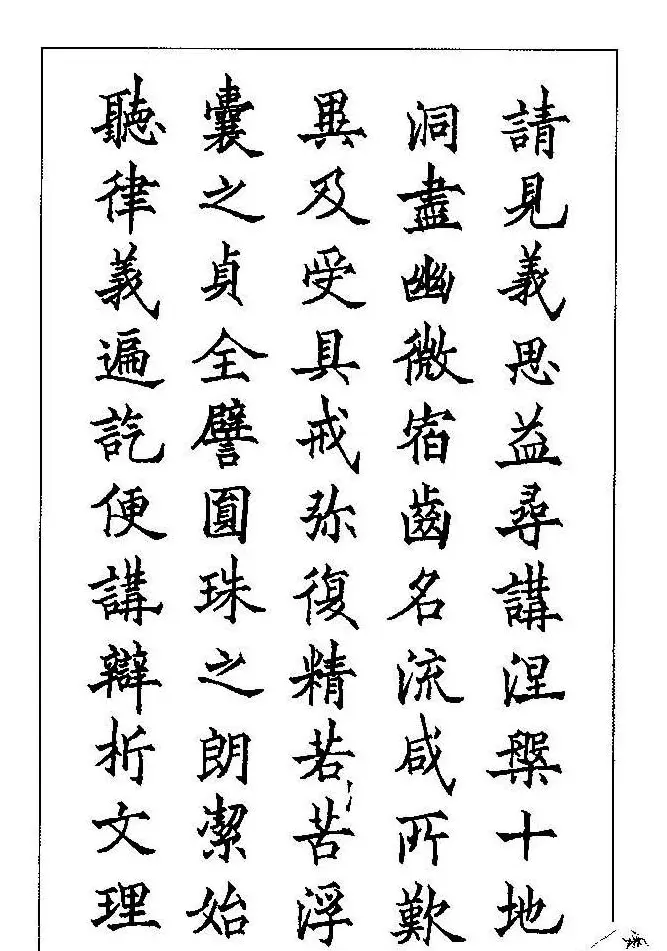 請見義思益尋講涅槃十地
洞盡幽微宿齒名流咸所歎
異及受具戒弥復精若苦浮
囊之貞全譬圓珠之朗潔始
聽律義遍訖便講辯析文理